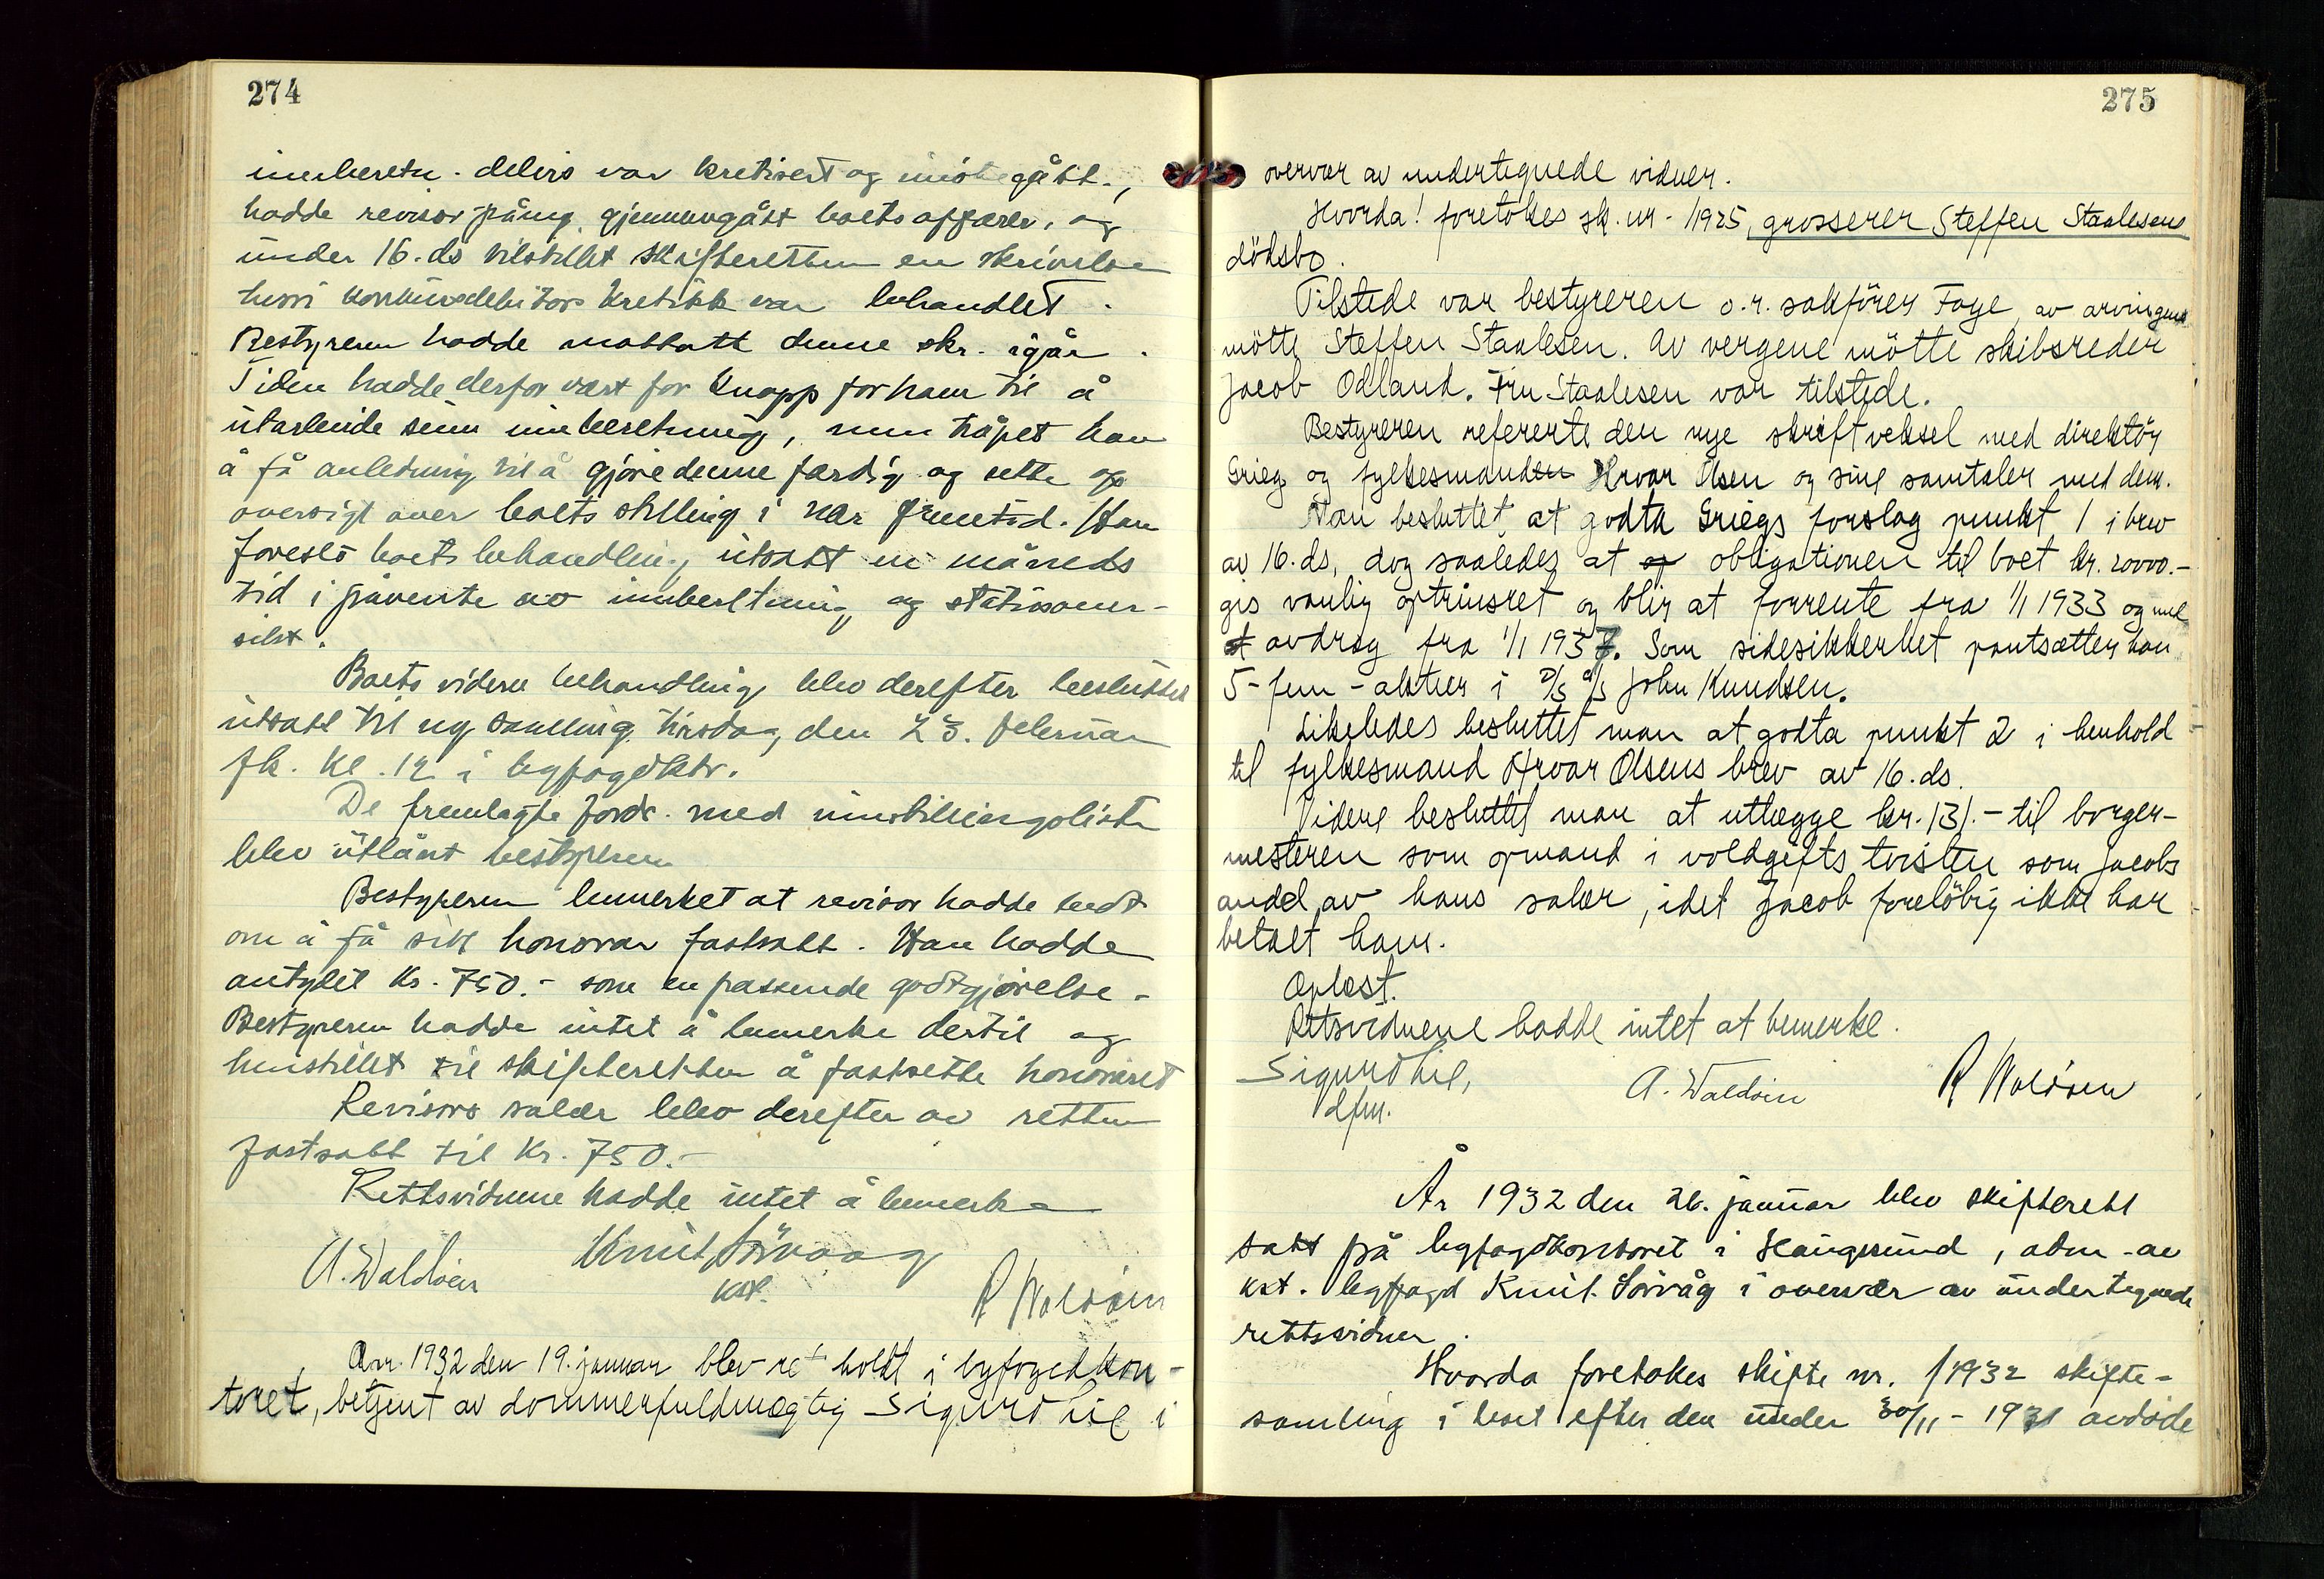 274
innberetn. delvis var kretisert og imötegått.,
hadde revisor påny gjennemgått boets affærer, og
under 16. ds tilstillet skifteretten en skrivelse
hvori konkursdebitors kretikk var behandlet.
Bestyreren hadde mottatt denne skr. igår.
Tiden hadde derfor vært for knapp for ham til å
utarbeide sinn innberetning, men håpet han
å få anledning til å gjöre denne færdig og sette op
oversigt over boets stilling i nær fremtid. Han
foreslo boets behandling utsatt en måneds
tid i påvente av innberetning og statusover-
sikt.
Boets videre behandling blev derefter besluttet
utsatt til ny samling tirsdag den 23. februar
fk. kl. 12 i byfogdktr.
De fremlagte ford. med innstillingsliste
blev utlånt bestyreren
Bestyreren bemerket at revisor hadde bedt
om å få sitt honorar fastsatt. Han hadde
antydet kr. 750.- som en passende godtgjörelse.
Bestyreren hadde intet å bemerke dertil og
henstillet til skifteretten å fastsette honoraret
Revisors salær blev derefter av retten
fastsatt til kr. 750.-
Rettsvidnene hadde intet å bemerke
A. Waldöen Knut Sörvaag R Waldöen
kst.
Aar 1932 den 19. januar blev ret holdt i byfogedkon-
toret, betjent av dommerfuldmægtig Sigurd Lie i
275
overvær av undertegnede vidner.
Hvorda! foretokes sk. nr. 1/1925, grosserer Steffen Staalesens
dödsbo.
Tilstede var bestyreren o.r. sakförer Foye, av arvingene
mötte Steffen Staalesen. Av vergene mötte skibsreder
Jacob Odland. Fru Staalesen var tilstede.
Bestyreren refererte den nye skriftveksel med direktör
Grieg og fylkesmanden Hroar Olsen og sine samtaler med dem.
Man besluttet at godta Griegs forslag punkt 1 i brev
av 16. ds, dog saaledes at obligationen til boet kr. 20000.-
gis vanlig optrinsret og blir at forrente fra 1/1 1933 og med
avdrag fra 1/1 1937. Som sidesikkerhet pantsætter han
5 - fem - aktier i D/S A/S John Knudsen.
Likeledes besluttet man at godta punkt 2 i henhold
til fylkesmand Hroar Olsens brev av 16. ds.
Videre besluttet man at utlægge kr. 131.- til borger-
mesteren som opmand i voldgifts tvisten som Jacobs
andel av hans salær, idet Jacob foreløbig ikke har
betalt ham.
Oplæst.
Retsvidnene hadde intet at bemerke.
Sigurd Lie, A. Waldöen R Waldöen
dfm.
År 1932 den 26. januar blev skifterett
satt på byfogdkontoret i Haugesund, adm. av
kst. byfogd Knut Sörvåg i overvær av undertegnede
rettsvidner.
Hvorda foretokes skifte nr. 1/1932 skifte-
samling i boet efter den under 30/11 - 1931 avdöde